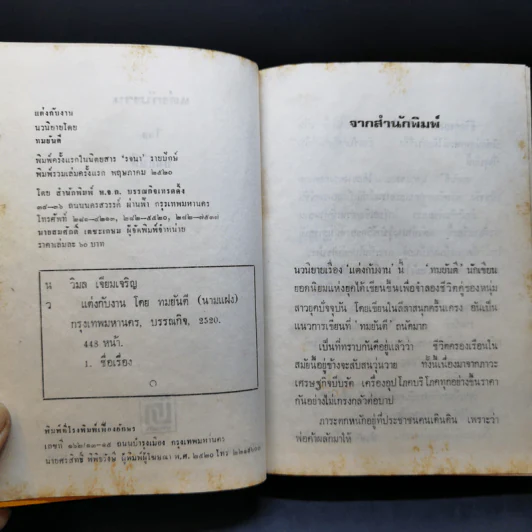 แต่งกับงาน
นวนิยายโดย
ทมยันตี
พิมพ์ครั้งแรกในนิตยสาร 'รจนา' รายปักษ์
พิมพ์รวมเล่มครั้งแรก พฤษภาคม ๒๕๒๐
โดย สำนักพิมพ์ บรรณกิจเทรดดิ้ง
๓๔-๓๖ ถนนนครสวรรค์ ผ่านฟ้า กรุงเทพมหานคร
โทรศัพท์ ๒๘๒-๕๕๒๐
นายสมศักดิ์ เตชะเกษม ผู้จัดพิมพ์จำหน่าย
ราคาเล่มละ ๖๐ บาท
น วิมล เจียมเจริญ
ว แต่งกับงาน โดย ทมยันตี (นามแฝง)
กรุงเทพมหานคร, บรรณกิจ, 2520.
448 หน้า.
1. ชื่อเรื่อง
พิมพ์ที่โรงพิมพ์เฟื่องอักษร
ถนนบำรุงเมือง กรุงเทพมหานคร
ผู้พิมพ์ผู้โฆษณา พ.ศ. ๒๕๒๐ โทร
จากสำนักพิมพ์
นวนิยายเรื่อง 'แต่งกับงาน' นี้ 'ทมยันตี' นักเขียน
ยอดนิยมแห่งยุคได้เขียนขึ้นเพื่อจำลองชีวิตคู่ของหนุ่ม
สาวยุคปัจจุบัน โดยเขียนในลีลาสนุกครื้นเครง อันเป็น
แนวการเขียนที่ 'ทมยันตี' ถนัดมาก
เป็นที่ทราบกันดีอยู่แล้วว่า ชีวิตครองเรือนใน
สมัยนี้อยู่ข้างจะสับสนวุ่นวาย ทั้งนี้เนื่องมาจากภาวะ
เศรษฐกิจบีบรัด เครื่องอุปโภคบริโภคทุกอย่างขึ้นราคา
กันอย่างไม่เกรงกลัวต่อบาป
ภาระตกหนักอยู่ที่ประชาชนคนเดินดิน เพราะว่า
พ่อค้าผลักมาให้